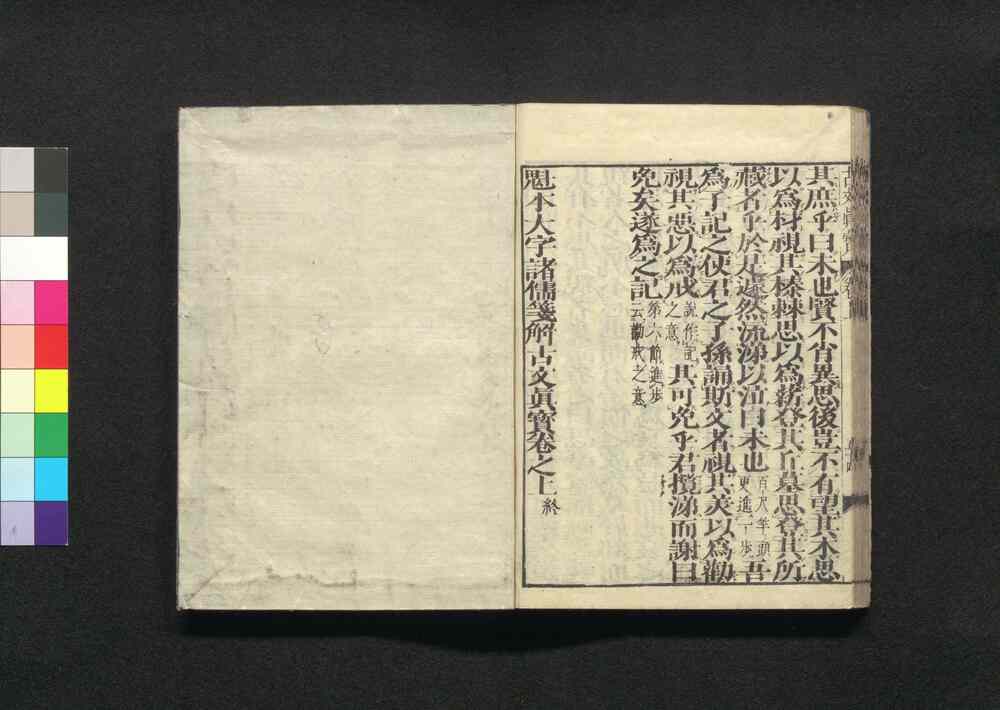 其庶乎曰木也賢不肖異思後豈不有望其木思
以為材視其榛棘思以為薪登其丘墓思登其所
藏者乎於是遽然流涕以泣曰木也百尺竿頭更進一步吾
為子記之使君之子孫誦斯文者視其美以為勸
視其惡以為戒說作記之意其可免乎君攬涕而謝曰
免矣遂為之記第六節進步云勸戒之意
魁本大字諸儒箋解古文眞寶卷之上終